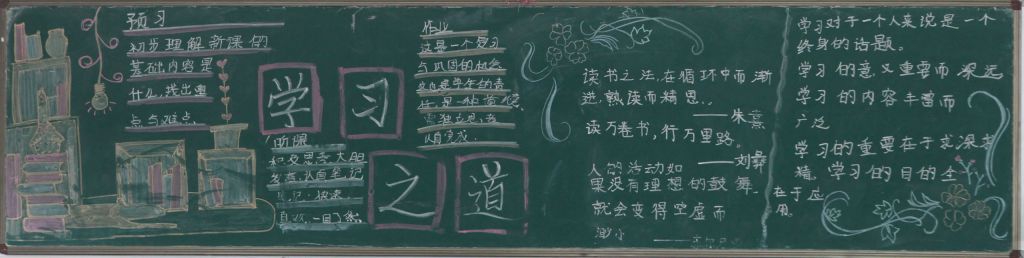 预习
初步理解新课的
基础内容是
什么,找出重
点与难点.
学习
之道
听课
积极思考大胆
作业
这是一个复习
与巩固的机会
独立思考
认真完成.
读书之法,在循环中而渐
进,熟读而精思.
——朱熹
读万卷书,行万里路.
——刘彝
人的活动如
果没有理想的鼓舞,
就会变得空虚而
渺小
学习对于一个人来说是一个
终身的话题。
学习的意义重要而深远
学习的内容丰富而
广泛
学习的重要在于求深求
精.学习的目的全
在于应
用.